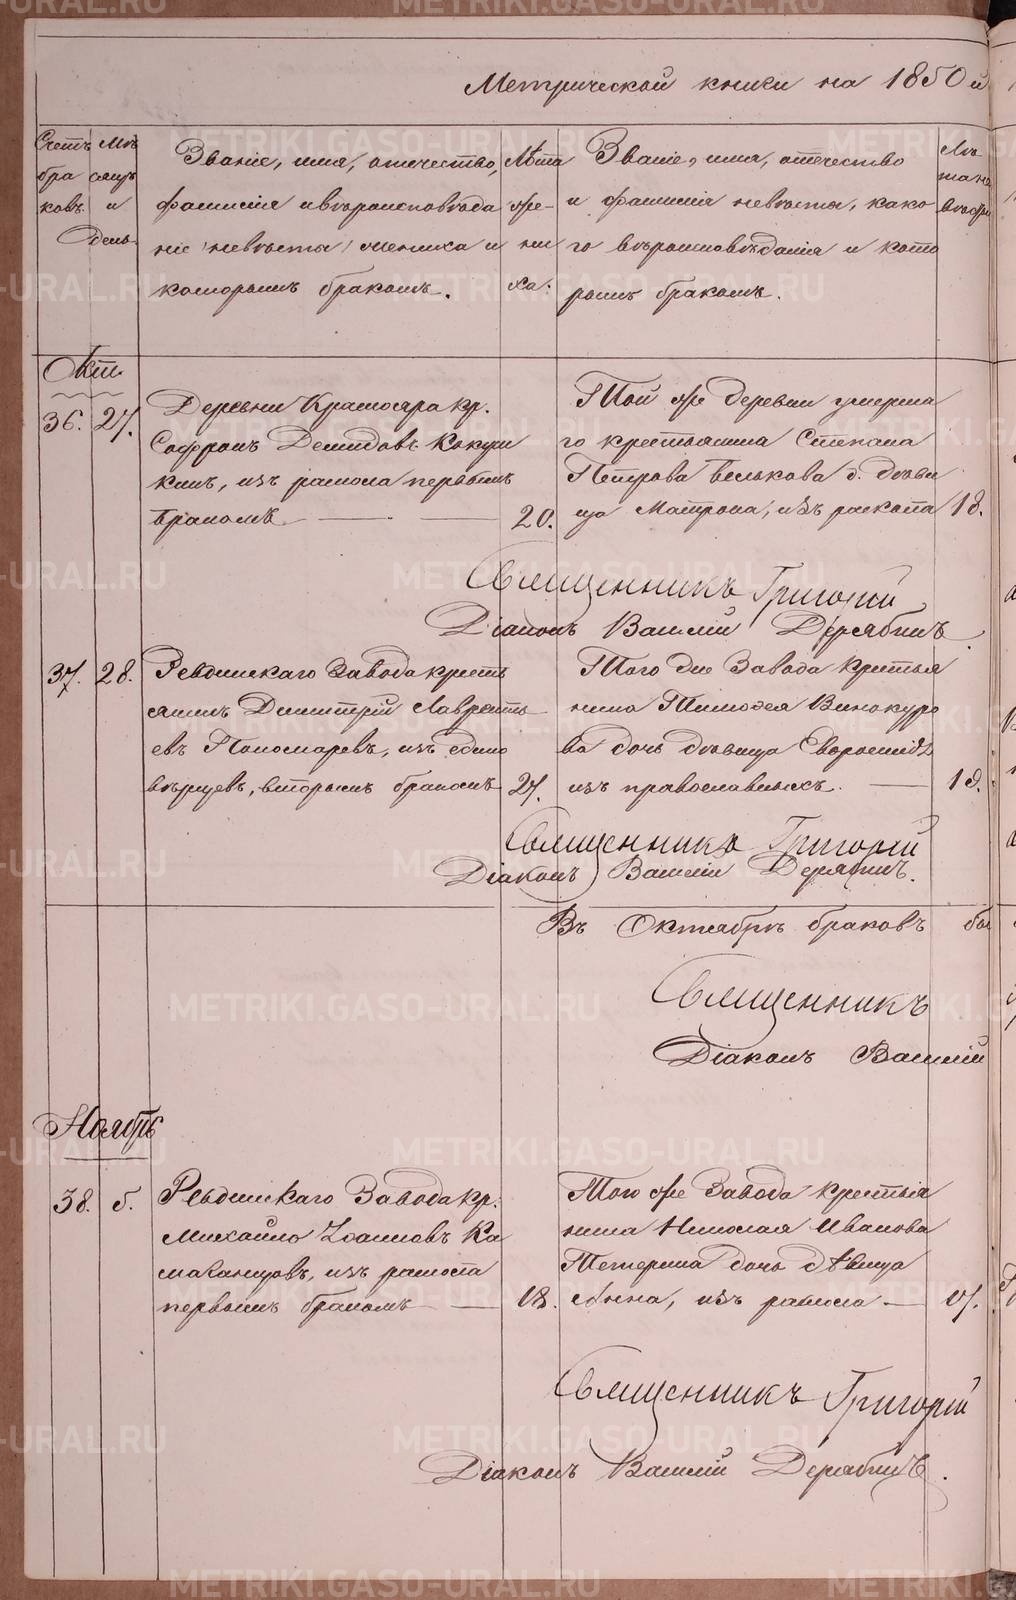 Метрической книги на 1850й
Счетъ бра ковъ.
Мѣ сяцъ и День.
Званіе, имя, отчество,
фамилія и вѣроисповѣда
ніе (невѣсты) жениха и
которымъ бракомъ.
Лѣта же- ни ха.
Званіе, имя, отчество
и фамилія невѣсты, како
го вѣроисповѣданія и кото
рымъ бракомъ.
Лѣ та не вѣсты
Окт.
36. 27.
Деревни Краснояра кр.
Софронъ Демидовъ Кокуш
кинъ, изъ раскола первымъ
бракомъ 20.
Той же деревни умерша
го крестьянина Степана
Петрова Белькова д. дѣви
ца Матрона, изъ раскола 18.
Священникъ Григорій
Діаконъ Василій Дерябинъ.
37. 28.
Ревдинскаго Завода кресть
янинъ Димитрій Лавренть
евъ Пономаревъ, изъ едино
вѣрцевъ, вторымъ бракомъ 27.
Того же Завода крестья
нина Тимофея Винокуро
ва дочь дѣвица
изъ православныхъ. 19.
Священникъ Григорій
Діаконъ Василій Дерябинъ.
Въ Октябрѣ браковъ бы
Священникъ
Діаконъ Василій
Ноябрь
38. 5.
Ревдинскаго Завода кр.
Михайло Іоанновъ Ка
маганцовъ, изъ раскола
первымъ бракомъ 18.
Того же Завода крестья
нина Николая Иванова
Тетерина дочь дѣвица
Анна, изъ раскола 17.
Священникъ Григорій
Діаконъ Василій Дерябинъ.
METRIKI.GASO-URAL.RU